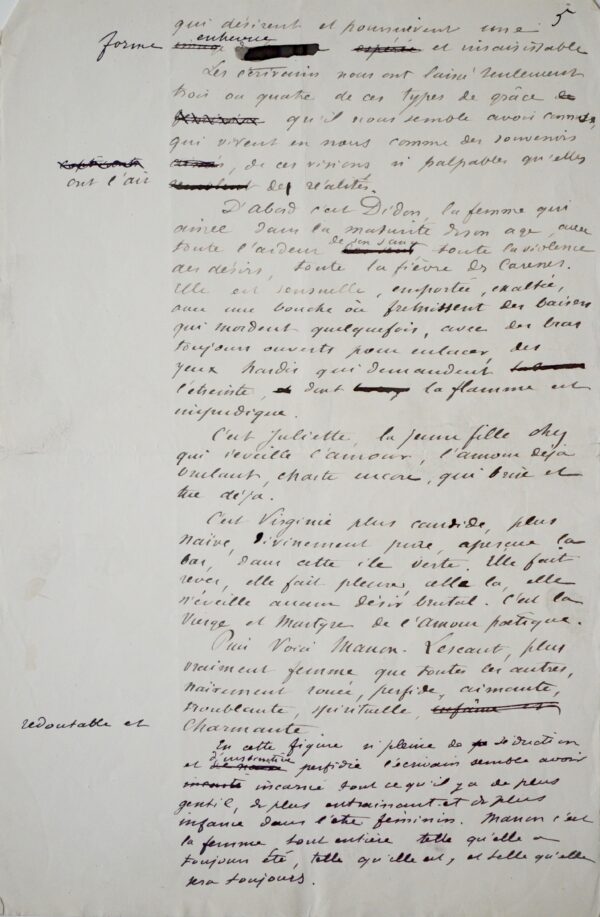 5
qui désirent et poursuivent une
forme entrevue et insaisissable
Les écrivains nous ont laissé seulement
trois ou quatre de ces types de grâce
qu'il nous semble avoir connus,
qui vivent en nous comme des souvenirs
, de ces visions si palpables qu'elles
ont l'air des réalités.
D'abord c'est Didon, la femme qui
aime dans la maturité de son age, avec
toute l'ardeur de son sang toute la violence
des désirs, toute la fièvre des caresses.
Elle est sensuelle, emportée, exaltée,
avec une bouche où fremissent des baisers
qui mordent quelquefois, avec des bras
toujours ouverts pour enlacer, des
yeux hardis qui demandent
l'étreinte, dont la flamme est
impudique.
C'est Juliette, la jeune fille chez
qui s'éveille l'amour, l'amour déjà
brulant, chaste encore, qui brise et
tue déjà.
C'est Virginie plus candide, plus
naïve, divinement pure, aperçue la
bas, dans cette ile verte. Elle fait
rever, elle fait pleurer, celle la, elle
n'éveille aucun désir brutal. C'est la
Vierge et Martyre de l'amour poétique.
Puis Voici Manon-Lescaut, plus
vraiment femme que toutes les autres,
naïvement rouée, perfide, aimante,
troublante, spirituelle,
redoutable et Charmante
En cette figure si pleine de séduction
et d'instinctive perfidie l'écrivain semble avoir
incarné tout ce qu'il y a de plus
gentil, de plus entrainant et de plus
infame dans l'etre féminin. Manon c'est
la femme tout entière telle qu'elle a
toujours été, telle qu'elle est, et telle qu'elle
sera toujours.